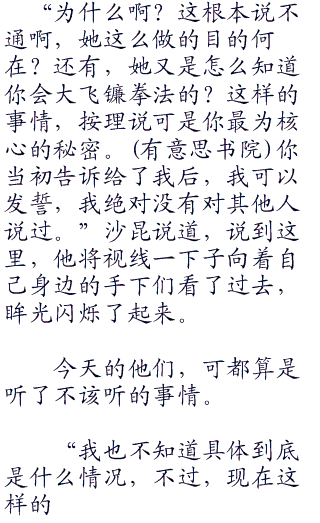 “为什么啊？这根本说不
通啊，她这么做的目的何
在？还有，她又是怎么知道
你会大飞镰拳法的？这样的
事情，按理说可是你最为核
心的秘密。(有意思书院)你
当初告诉给了我后，我可以
发誓，我绝对没有对其他人
说过。”沙昆说道，说到这
里，他将视线一下子向着自
己身边的手下们看了过去，
眸光闪烁了起来。
今天的他们，可都算是
听了不该听的事情。
“我也不知道具体到底
是什么情况，不过，现在这
样的